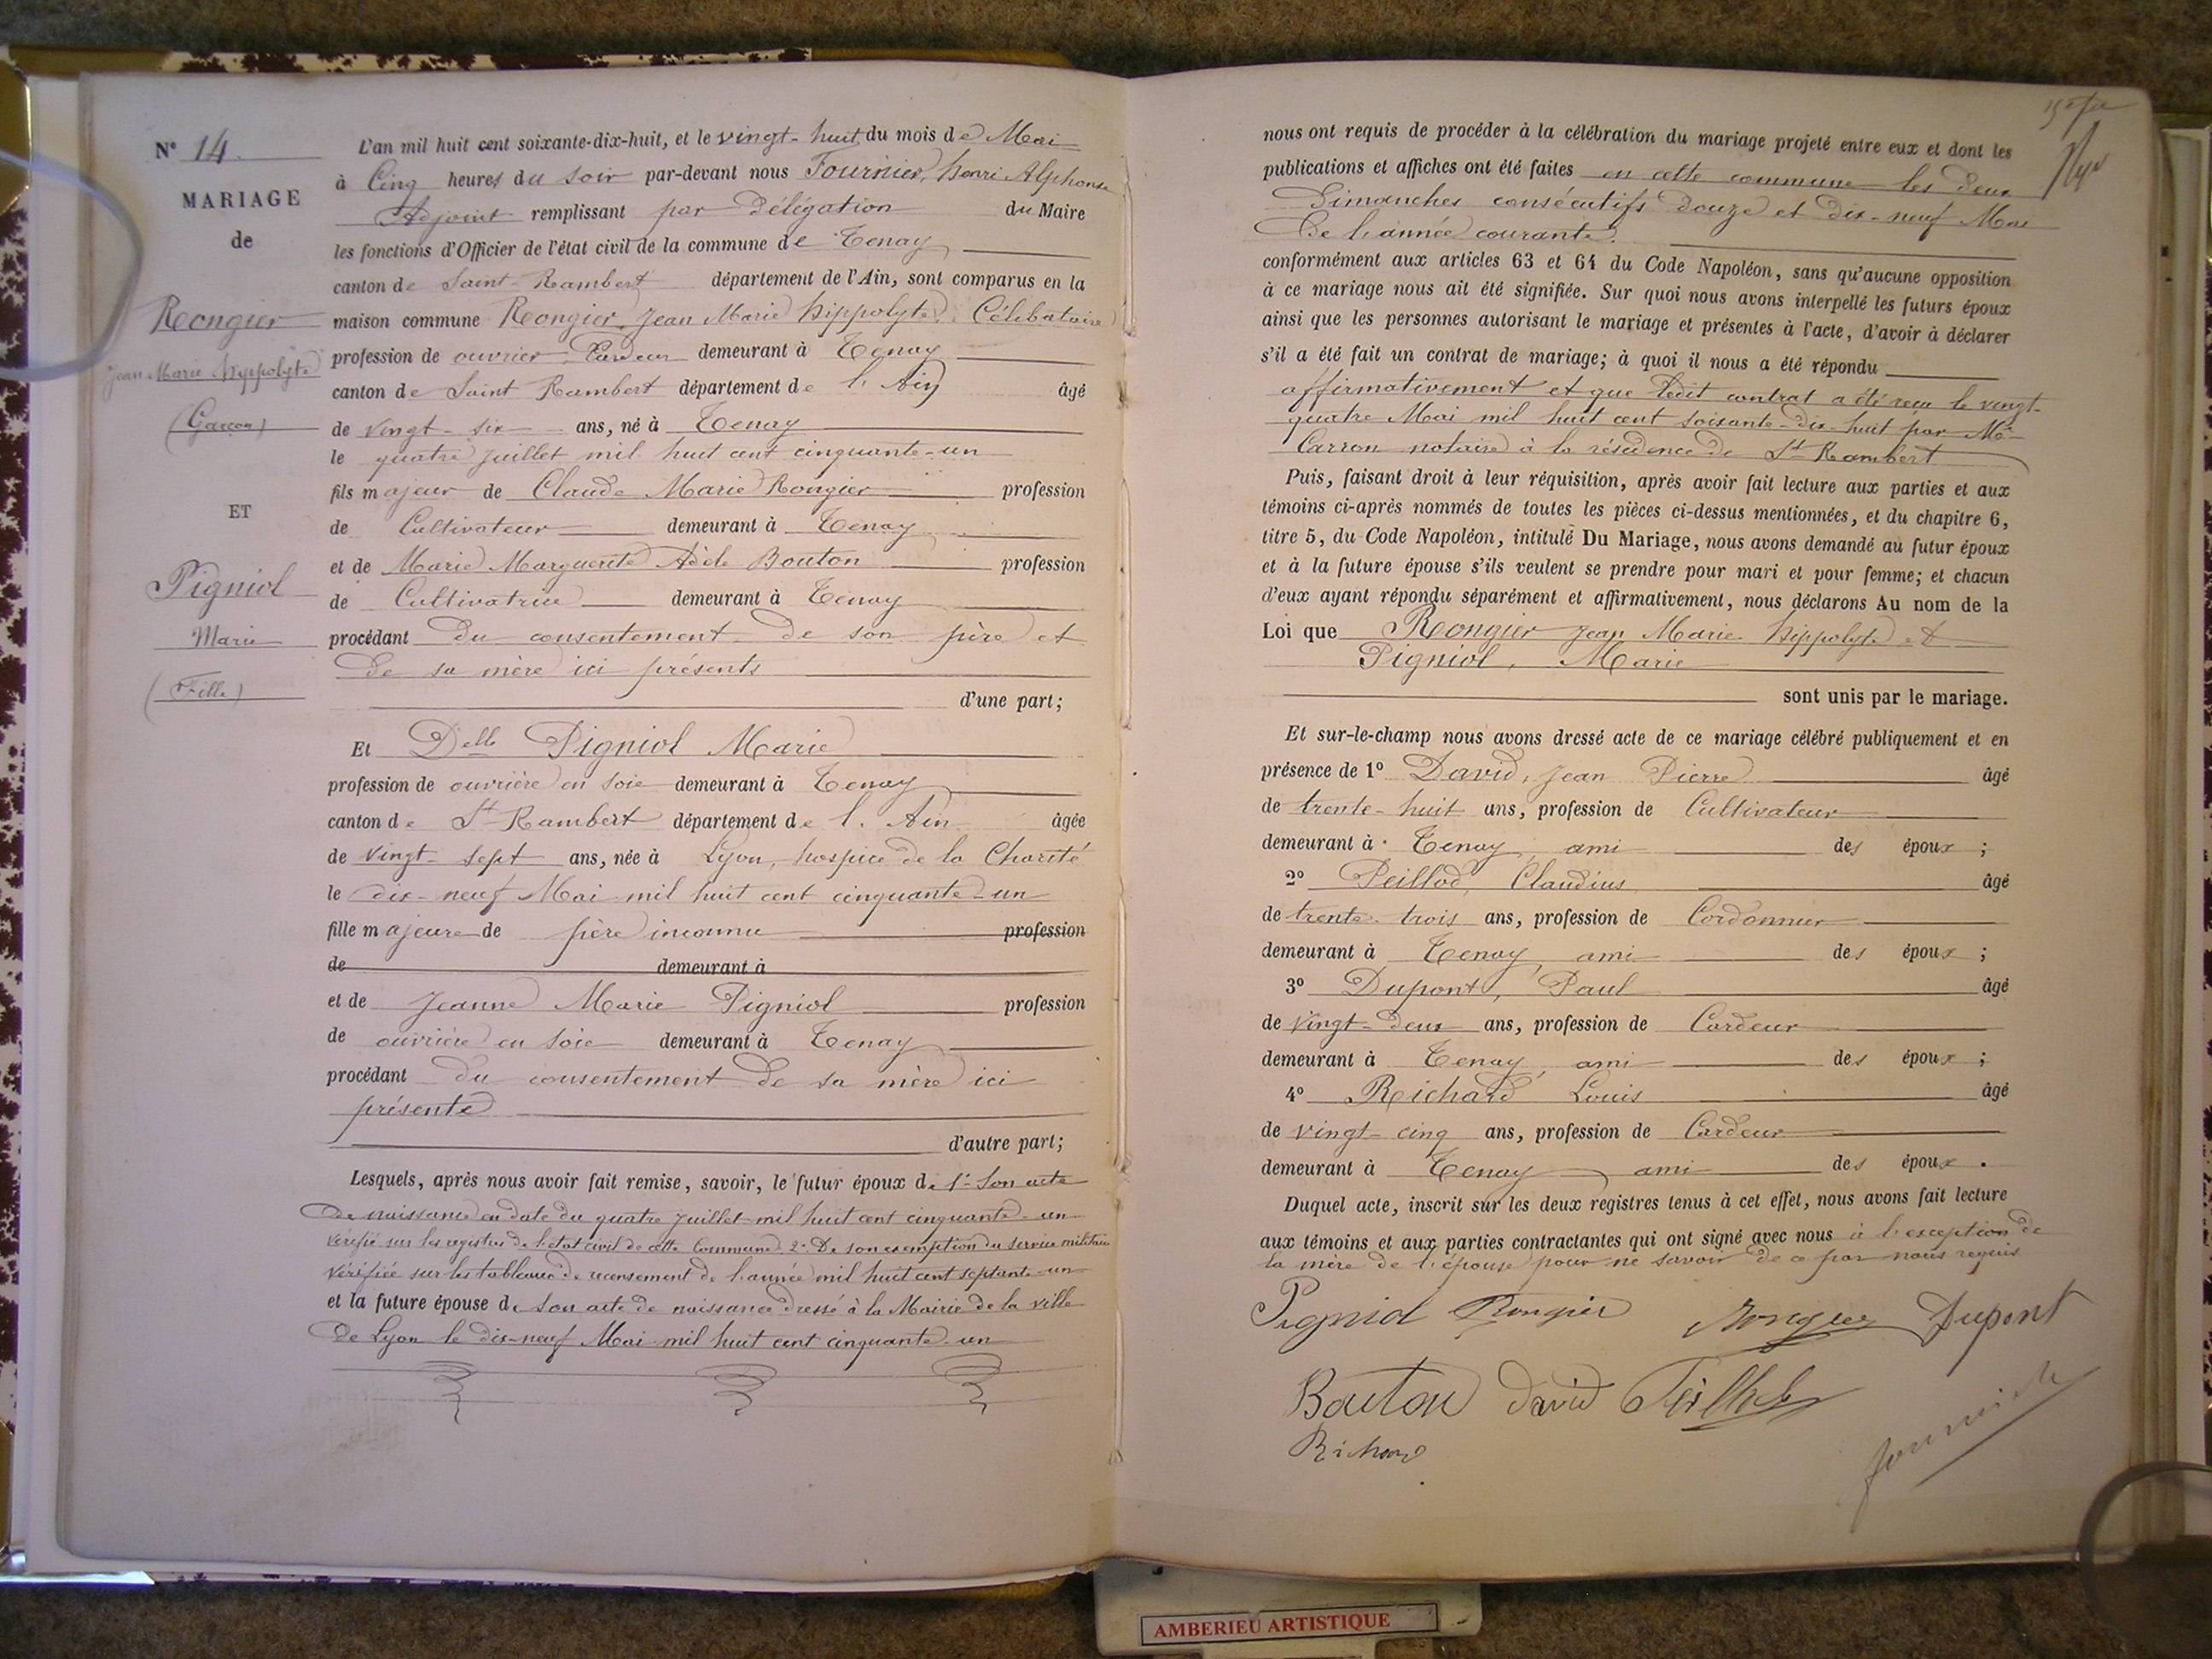 N° 14.
MARIAGE
de
Rongier
Jean Marie Hyppolyte
(Garçon)
ET
Pigniol
Marie
(Fille)
L'an mil huit cent soixante-dix-huit, et le vingt-huit du mois de Mai
à Cinq heures du soir par-devant nous Fournier, henri Alphonse
Adjoint remplissant par délégation du Maire
les fonctions d'Officier de l'état civil de la commune de Tenay
canton de Saint-Rambert département de l'Ain, sont comparus en la
maison commune Rongier, Jean Marie hippolyte. Célibataire
profession de ouvrier Cardeur demeurant à Tenay
canton de Saint Rambert département de l'Ain âgé
de vingt-six ans, né à Tenay
le quatre Juillet mil huit cent cinquante-un
fils majeur de Claude Marie Rongier profession
de Cultivateur demeurant à Tenay
et de Marie Marguerite Adèle Bouton profession
de Cultivatrice demeurant à Tenay
procédant du consentement de son père et
de sa mère ici présents
d'une part;
Et Delle Pigniol Marie
profession de ouvrière en soie demeurant à Tenay
canton de St Rambert département de l'Ain âgée
de vingt-sept ans, née à Lyon, hospice de la Charité
le dix-neuf Mai mil huit cent cinquante-un
fille majeure de père inconnu profession
de demeurant à
et de Jeanne Marie Pigniol profession
de ouvrière en soie demeurant à Tenay
procédant du consentement de sa mère ici
présente
d'autre part;
Lesquels, après nous avoir fait remise, savoir, le futur époux de 1° Son acte
de naissance en date du quatre Juillet mil huit cent cinquante-un
vérifié sur les registres de l'état civil de cette Commune. 2° De son exemption du service militaire
vérifiée sur les tableaux de recensement de l'année mil huit cent septante-un
et la future épouse de Son acte de naissance dressé à la Mairie de la ville
de Lyon le dix-neuf Mai mil huit cent cinquante-un
nous ont requis de procéder à la célébration du mariage projeté entre eux et dont les
publications et affiches ont été faites en cette commune les deux
Dimanches consécutifs douze et dix-neuf Mai
de l'année courante.
conformément aux articles 63 et 64 du Code Napoléon, sans qu'aucune opposition
à ce mariage nous ait été signifiée. Sur quoi nous avons interpellé les futurs époux
ainsi que les personnes autorisant le mariage et présentes à l'acte, d'avoir à déclarer
s'il a été fait un contrat de mariage; à quoi il nous a été répondu
affirmativement et que ledit contrat a été reçu le vingt-
quatre Mai mil huit cent soixante-dix-huit par Me
Carron notaire à la résidence de St Rambert
Puis, faisant droit à leur réquisition, après avoir fait lecture aux parties et aux
témoins ci-après nommés de toutes les pièces ci-dessus mentionnées, et du chapitre 6,
titre 5, du Code Napoléon, intitulé Du Mariage, nous avons demandé au futur époux
et à la future épouse s'ils veulent se prendre pour mari et pour femme; et chacun
d'eux ayant répondu séparément et affirmativement, nous déclarons Au nom de la
Loi que Rongier Jean Marie hippolyte &
Pigniol, Marie
sont unis par le mariage.
Et sur-le-champ nous avons dressé acte de ce mariage célébré publiquement et en
présence de 1° David, Jean Pierre âgé
de trente-huit ans, profession de Cultivateur
demeurant à Tenay, ami des époux ;
2° Peillod, Claudius âgé
de trente-trois ans, profession de Cordonnier
demeurant à Tenay, ami des époux ;
3° Dupont, Paul âgé
de vingt-deux ans, profession de Cardeur
demeurant à Tenay, ami des époux ;
4° Richard Louis âgé
de vingt-cinq ans, profession de Cardeur
demeurant à Tenay ami des époux .
Duquel acte, inscrit sur les deux registres tenus à cet effet, nous avons fait lecture
aux témoins et aux parties contractantes qui ont signé avec nous à l'exception de
la mère de l'épouse pour ne savoir de ce par nous requis
Pigniol Rongier Rongier Dupont
Bouton David Peillod
Richard
fournier
AMBERIEU ARTISTIQUE